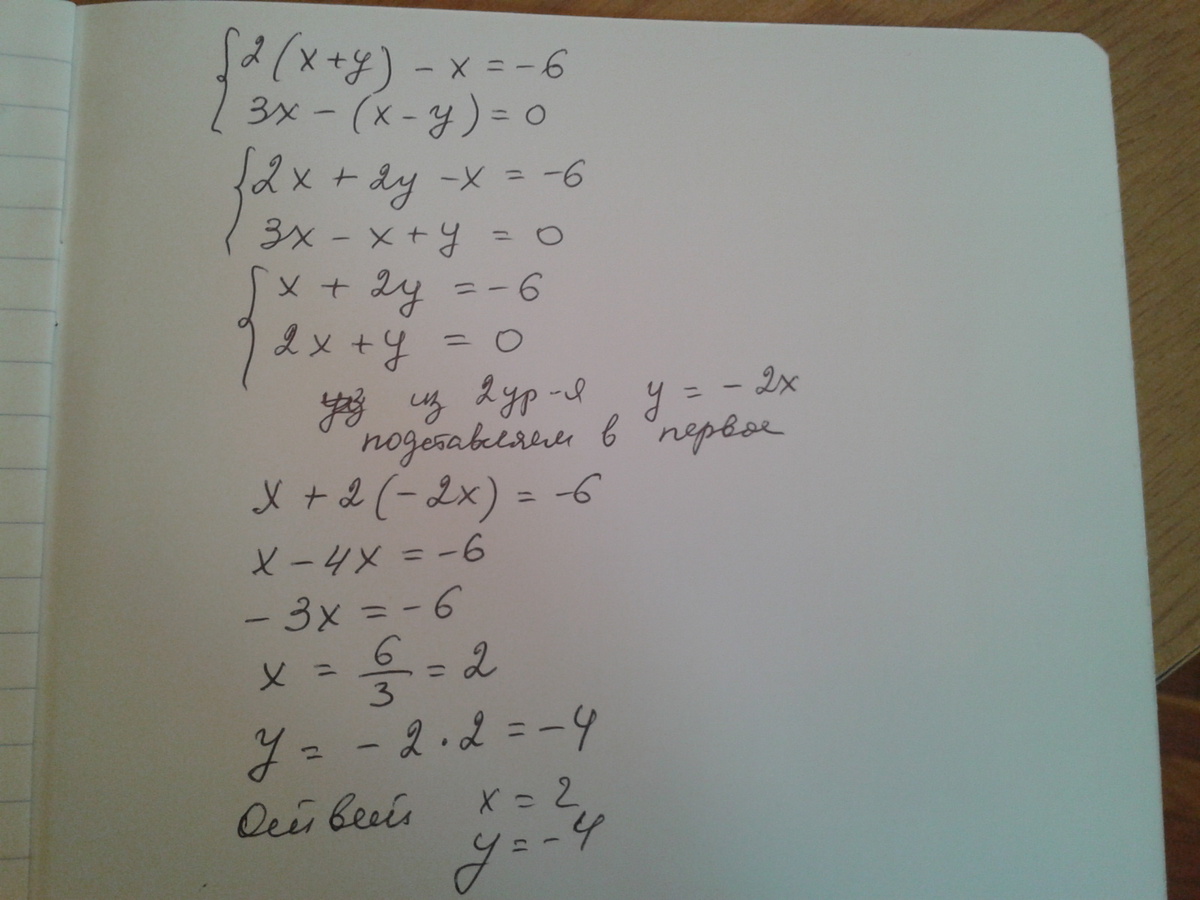 {2(x+y) - x = -6
3x - (x - y) = 0
{2x + 2y - x = -6
3x - x + y = 0
{x + 2y = -6
2x + y = 0
из 2 ур-я y = -2x
подставляем в первое
x + 2(-2x) = -6
x - 4x = -6
-3x = -6
x = 6/3 = 2
y = -2·2 = -4
Ответ x = 2
y = -4